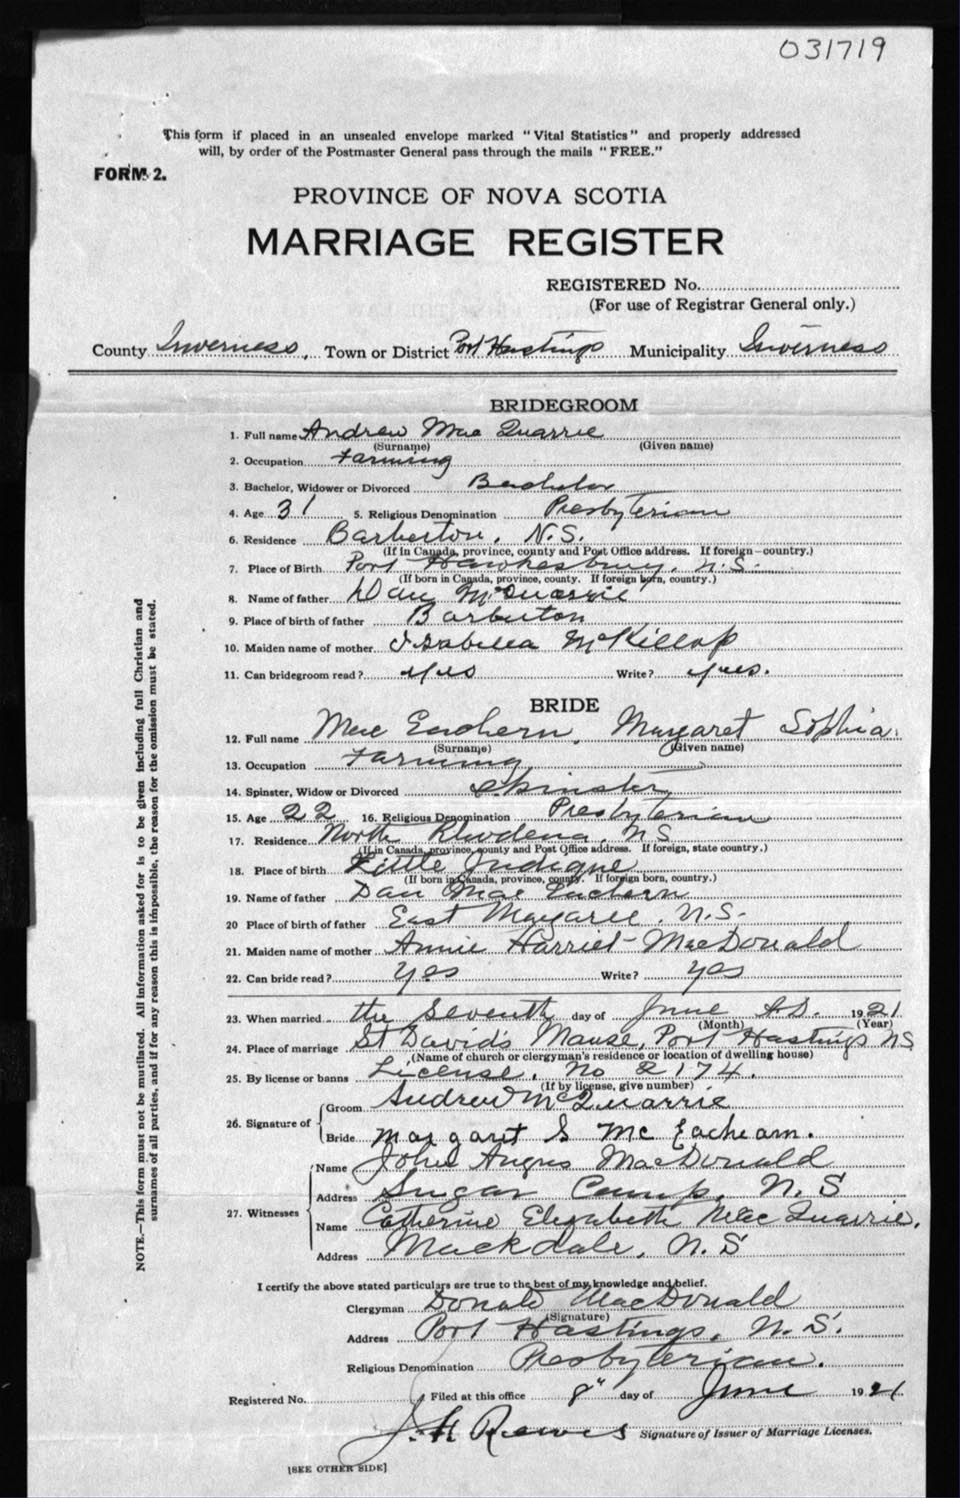 031719
This form if placed in an unsealed envelope marked "Vital Statistics" and properly addressed
will, by order of the Postmaster General pass through the mails "FREE."
FORM 2.
PROVINCE OF NOVA SCOTIA
MARRIAGE REGISTER
REGISTERED No.
(For use of Registrar General only.)
County Inverness, Town or District Port Hastings Municipality Inverness
BRIDEGROOM
1. Full name Andrew Mac Quarrie
(Surname) (Given name)
2. Occupation Farming
3. Bachelor, Widower or Divorced Bachelor
4. Age 31 5. Religious Denomination Presbyterian
6. Residence Barberton, N.S.
(If in Canada, province, county and Post Office address. If foreign—country.)
7. Place of Birth Port Hawkesbury, N.S.
(If born in Canada, province, county. If foreign born, country.)
8. Name of father Dan McQuarrie
9. Place of birth of father Barberton
10. Maiden name of mother Isabella McKillop
11. Can bridegroom read? yes Write? yes.
BRIDE
12. Full name Mac Eachern, Margaret Sophia.
(Surname) (Given name)
13. Occupation Farming
14. Spinster, Widow or Divorced Spinster
15. Age 22 16. Religious Denomination Presbyterian
17. Residence North Rhodena, NS
(If in Canada, province, county and Post Office address. If foreign, state country.)
18. Place of birth Little Judique
(If born in Canada, province, county. If foreign born, country.)
19. Name of father Dan Mac Eachern
20 Place of birth of father East Margaree, N.S.
21. Maiden name of mother Annie Harriet MacDonald
22. Can bride read? yes Write? yes
23. When married the Seventh day of June A.D. 1921
(Month) (Year)
24. Place of marriage St David's Manse, Port Hastings NS
(Name of church or clergyman's residence or location of dwelling house)
25. By license or banns License, No 2174.
(If by license, give number)
26. Signature of Groom Andrew McQuarrie
Bride Margaret S McEachearn.
27. Witnesses Name John Angus MacDonald
Address Sugar Camp, N.S
Name Catherine Elizabeth Mac Quarrie.
Address Mackdale, N.S
I certify the above stated particulars are true to the best of my knowledge and belief.
Clergyman Donald MacDonald
(Signature)
Address Port Hastings, N.S.
Religious Denomination Presbyterian.
Registered No. Filed at this office 8" day of June 1921
J.H Signature of Issuer of Marriage Licenses.
[SEE OTHER SIDE]
NOTE.—This form must not be mutilated. All information asked for is to be given including full Christian and
surnames of all parties, and if for any reason this is impossible, the reason for the omission must be stated.